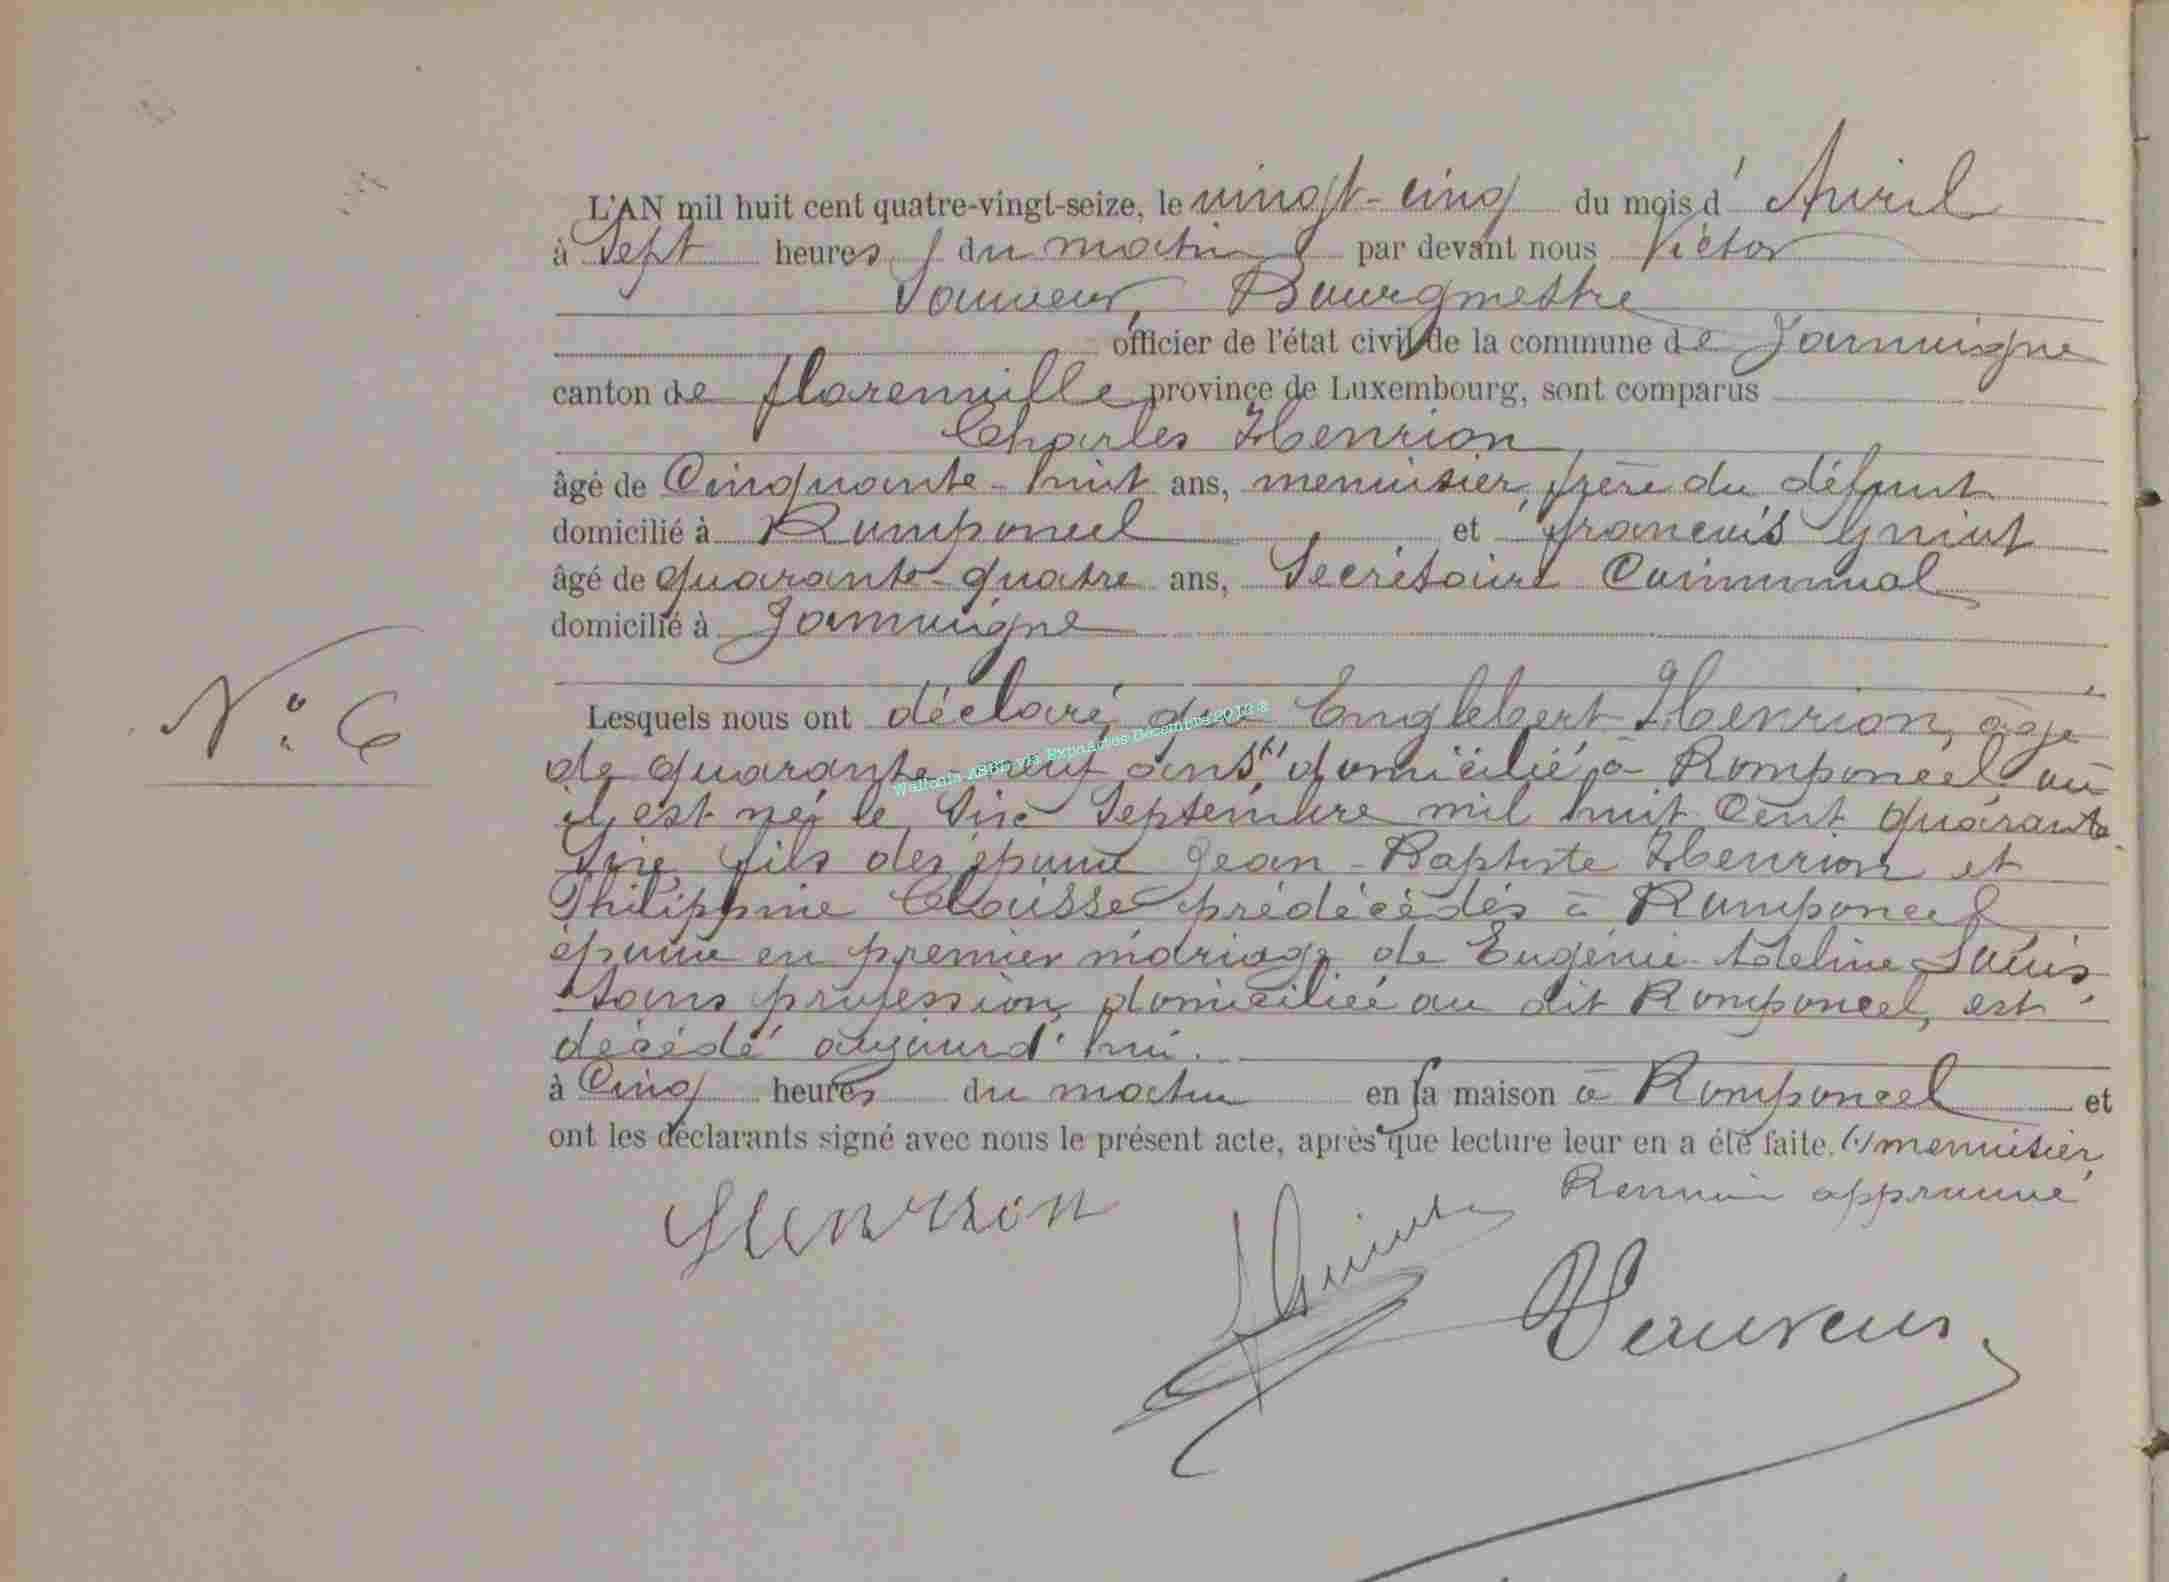 L'AN mil huit cent quatre-vingt-seize, le vingt-cinq du mois d' Avril
à Sept heures du matin par devant nous Victor
Sauveur, Bourgmestre
officier de l'état civil de la commune de Jamoigne
canton de florenville province de Luxembourg, sont comparus
Charles Henrion
âgé de Cinquante-huit ans, menuisier, frère du défunt
domicilié à Romponcel et françois
âgé de quarante-quatre ans, Secrétaire Communal
domicilié à Jamoigne
Lesquels nous ont déclaré que Englebert Henrion, âgé
N° 6
de quarante-neuf ans (1) domicilié à Romponcel où
il est né le six Septembre mil huit Cent quarante
six, fils des époux Jean-Baptiste Henrion et
Philippine Claisse prédécédés à Romponcel
époux en premier mariage de Eugénie Adeline Louis
sans profession, domiciliée au dit Romponcel, est
décédé aujourd'hui.
à Cinq heures du matin en sa maison à Romponcel et
ont les déclarants signé avec nous le présent acte, après que lecture leur en a été faite. (1) menuisier,
Renvoi approuvé
Henrion
VSauveur
Wallonia ASBL via ExpoActes décembre 2013